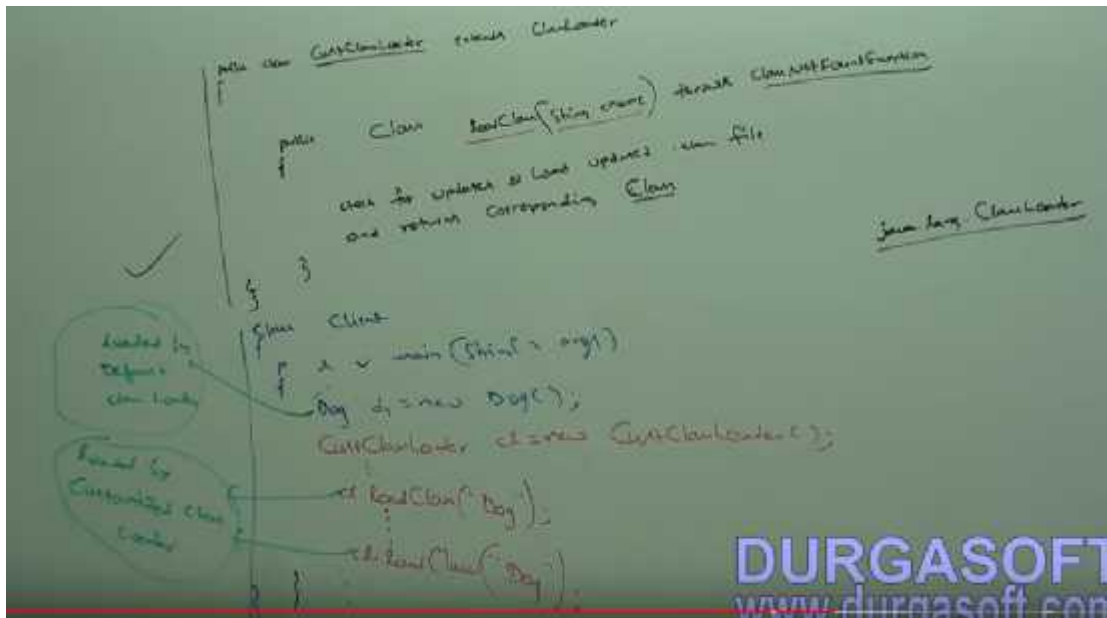 public class CustClassLoader extends ClassLoader
{
public Class loadClass(String cname) throws ClassNotFoundException
{
check for updates & load updated .class file
and returns corresponding Class
}
}
java.lang.ClassLoader
class Client
{
p s v main(String[] args)
{
Dog d1 = new Dog();
CustClassLoader cl = new CustClassLoader();
cl.loadClass("Dog");
cl.loadClass("Dog");
}
}
Loaded by
Default
class loader
Loaded by
Customized class
Loader
DURGASOFT
www.durgasoft.com